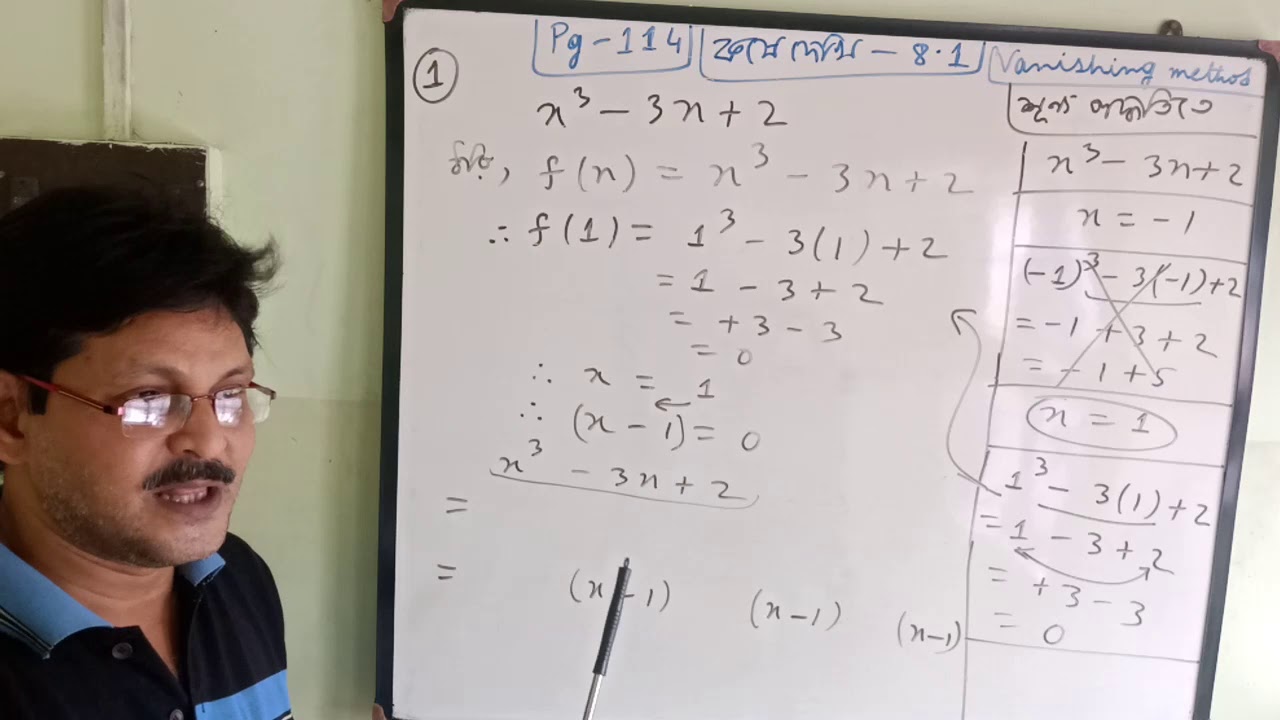 Pg - 114 কষে দেখি - 8.1 Vanishing method
শূন্য পদ্ধতিতে
① x³ - 3x + 2
ধরি, f(x) = x³ - 3x + 2
∴ f(1) = 1³ - 3(1) + 2
= 1 - 3 + 2
= +3 - 3
= 0
∴ x = 1
∴ (x - 1) = 0
x³ - 3x + 2
=
= (x - 1) (x - 1) (x - 1)
x³ - 3x + 2
x = -1
(-1)³ - 3(-1) + 2
= -1 + 3 + 2
= -1 + 5
x = 1
1³ - 3(1) + 2
= 1 - 3 + 2
= +3 - 3
= 0